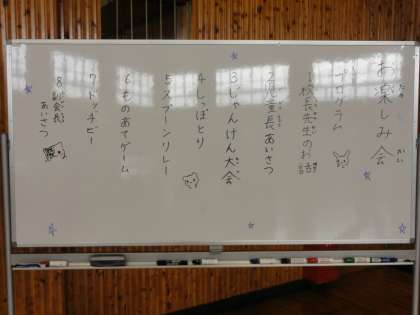 お楽しみ会
プログラム
1校長先生のお話
2児童長あいさつ
3じゃんけん大会
4しっぽとり
5スプーンリレー
6ものあてゲーム
7ドッチビー
8副会長
あいさつ